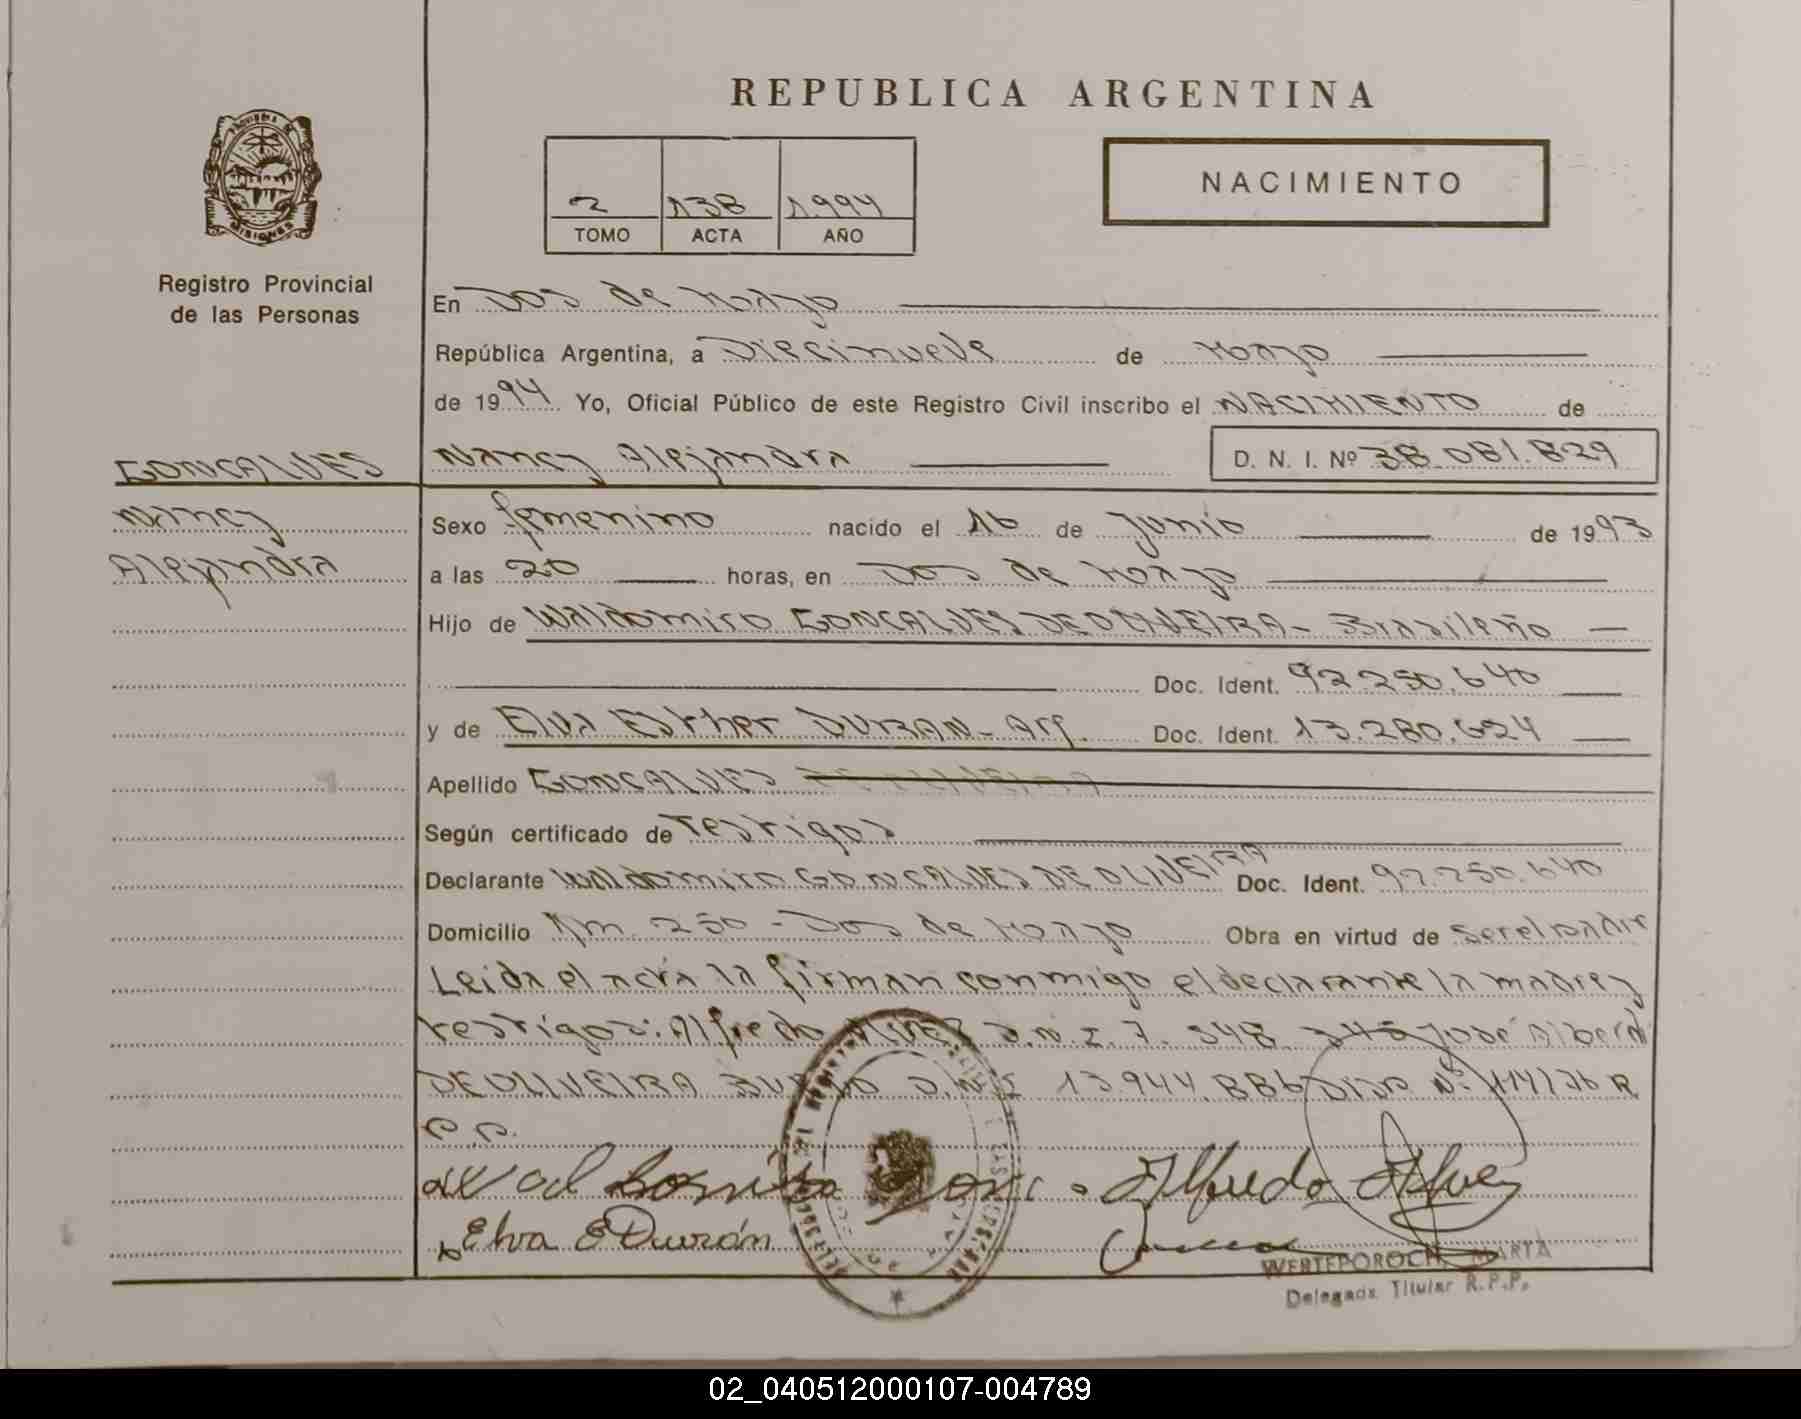 REPUBLICA ARGENTINA
PROVINCIA DE
MISIONES
Registro Provincial
de las Personas
2 138 1.994
TOMO ACTA AÑO
NACIMIENTO
En Dos de Mayo
República Argentina, a Diecinueve de Mayo
de 1994 Yo, Oficial Público de este Registro Civil inscribo el NACIMIENTO de
GONCALVES Nancy Alejandra D. N. I. Nº 38.081.829
Nancy
Alejandra
Sexo femenino nacido el 16 de Junio de 1993
a las 20 horas, en Dos de Mayo
Hijo de Waldomiro GONCALVES DE OLIVEIRA - Brasileño
Doc. Ident. 92.250.640
y de Elva Esther DURAN - Arg. Doc. Ident. 13.280.624
Apellido GONCALVES
Según certificado de Testigos
Declarante Waldomiro GONCALVES DE OLIVEIRA Doc. Ident. 92.250.640
Domicilio Km. 250 - Dos de Mayo Obra en virtud de
Leida el acta la firman conmigo el declarante la madre y
testigos: Alfredo ALVEZ D.N.I. 7. 548. José Alberto
DE OLIVEIRA D.N.I 13.944.886 Disp Nº 114/76 R
P.P.
Alfredo Alvez
Elva E Durán
WERTEPOROCH, MARTA
Delegada Titular R.P.P.
02_040512000107-004789